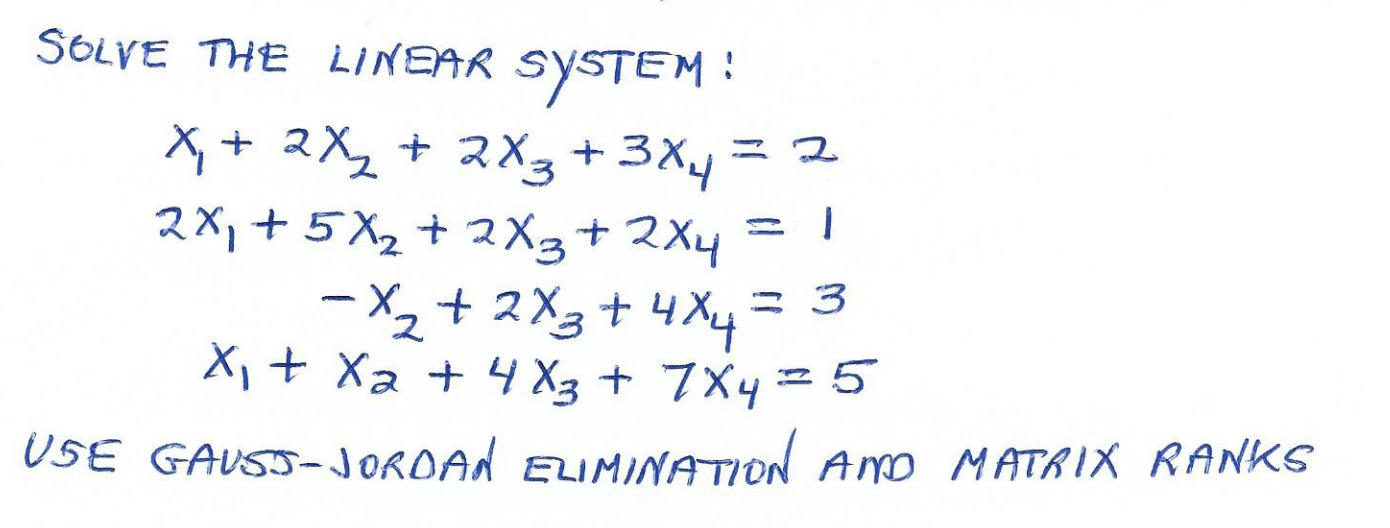 SOLVE THE LINEAR SYSTEM:
x₁ + 2x₂ + 2x₃ + 3x₄ = 2
2x₁ + 5x₂ + 2x₃ + 2x₄ = 1
-x₂ + 2x₃ + 4x₄ = 3
x₁ + x₂ + 4x₃ + 7x₄ = 5
USE GAUSS-JORDAN ELIMINATION AND MATRIX RANKS